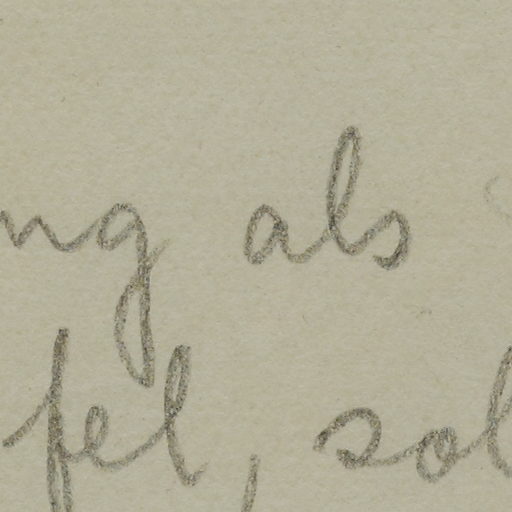 ng als
fel, sol